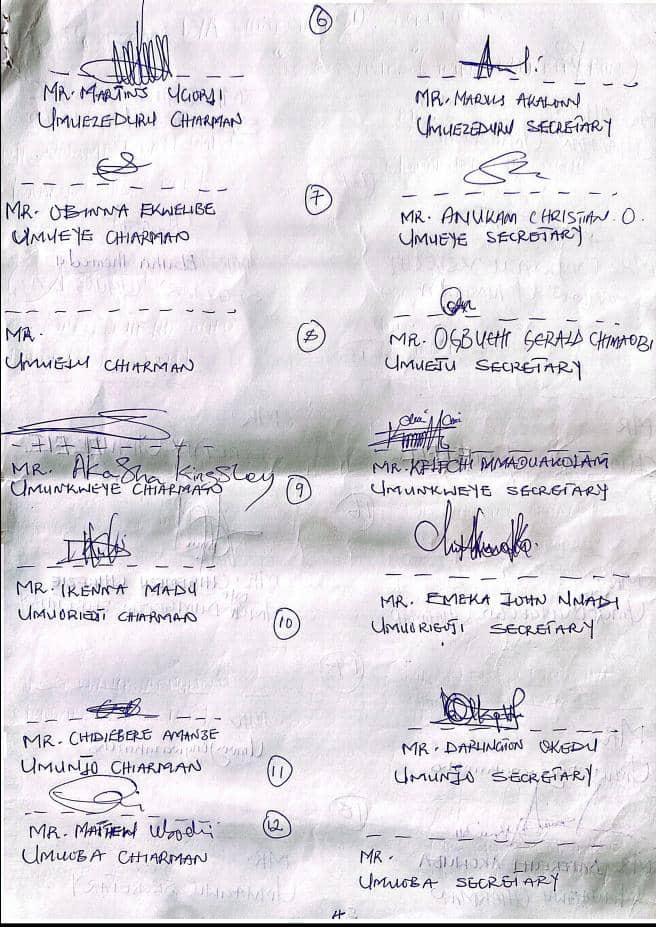 6
MR. MARTINS UGIORJI
UMUEZEDURU CHIARMAN
MR. MARKUS AKALONU
UMUEZEDURU SECRETARY
7
MR. OBINNA EKWELIBE
UMUEYE CHIARMAN
MR. ANUKAM CHRISTIAN. O.
UMUEYE SECRETARY
8
MR.
UMUEJU CHIARMAN
MR. OGBUEHI GERALD CHIMAOBI
UMUEJU SECRETARY
9
MR. Akasha Kingsley
UMUNKWEYE CHIARMAN
MR. KELECHI MMADUAKOLAM
UMUNKWEYE SECRETARY
10
MR. IKENNA MADU
UMUORIEDJI CHIARMAN
MR. EMEKA JOHN NNADI
UMUORIEUJI SECRETARY
11
MR. CHIDIEBERE AMANZE
UMUNJO CHIARMAN
MR. DARLINGTON OKEDU
UMUNJO SECRETARY
12
MR. MATHEW
UMUOBA CHIARMAN
MR.
UMUOBA SECRETARY
4